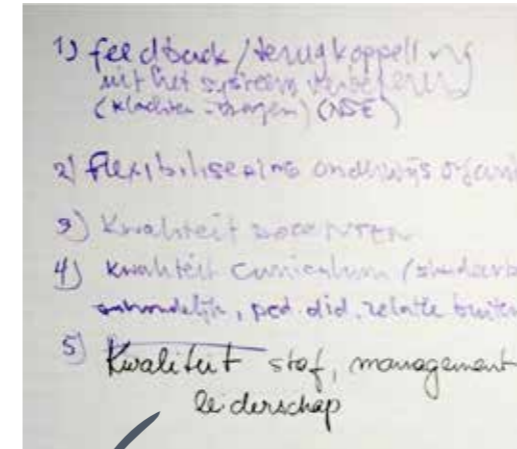 1) feedback/terugkoppeling
uit het systeem verbetering
(klachten - vragen) (NSE)
2) flexibilisering onderwijs organi
3) Kwaliteit DOCENTEN
4) kwaliteit curriculum (studeerb
, ped. did. relatie buiten
5) Kwaliteit staf, management
leiderschap